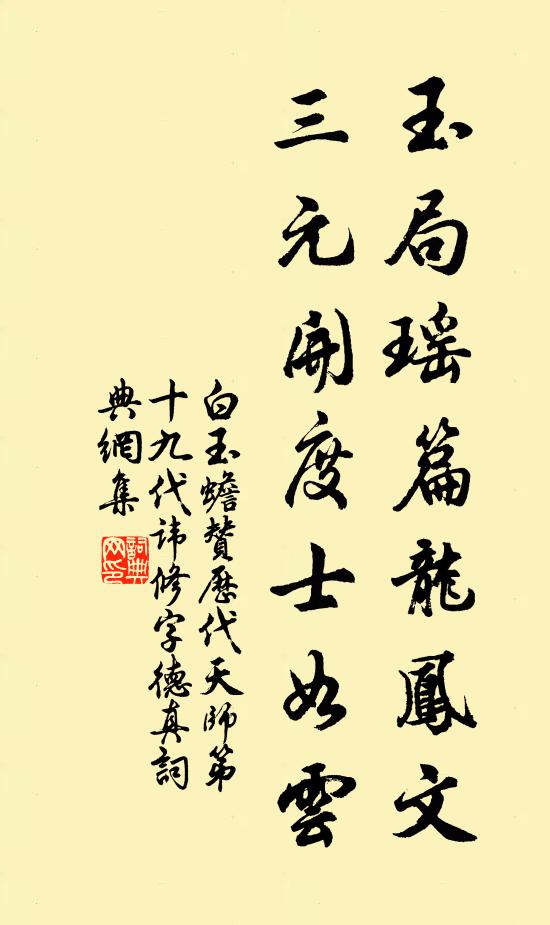 玉局瑶篇龍鳳文
三元開度士如雲
白玉蟾贊歷代天師第
十九代諱修字德真詞
典網集
詞典
网印